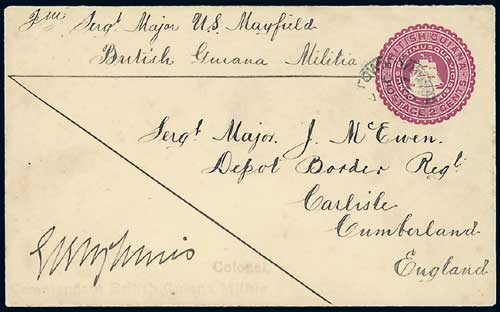 Sergt Major U.S. Mayfield
British Guiana Militia
BRITISH GUIANA
POSTAGE 2 CENTS
Sergt Major. J. McEwen.
Depot Border Regt.
Carlisle
Cumberland
England
Colonel,
Commandant British Guiana Militia